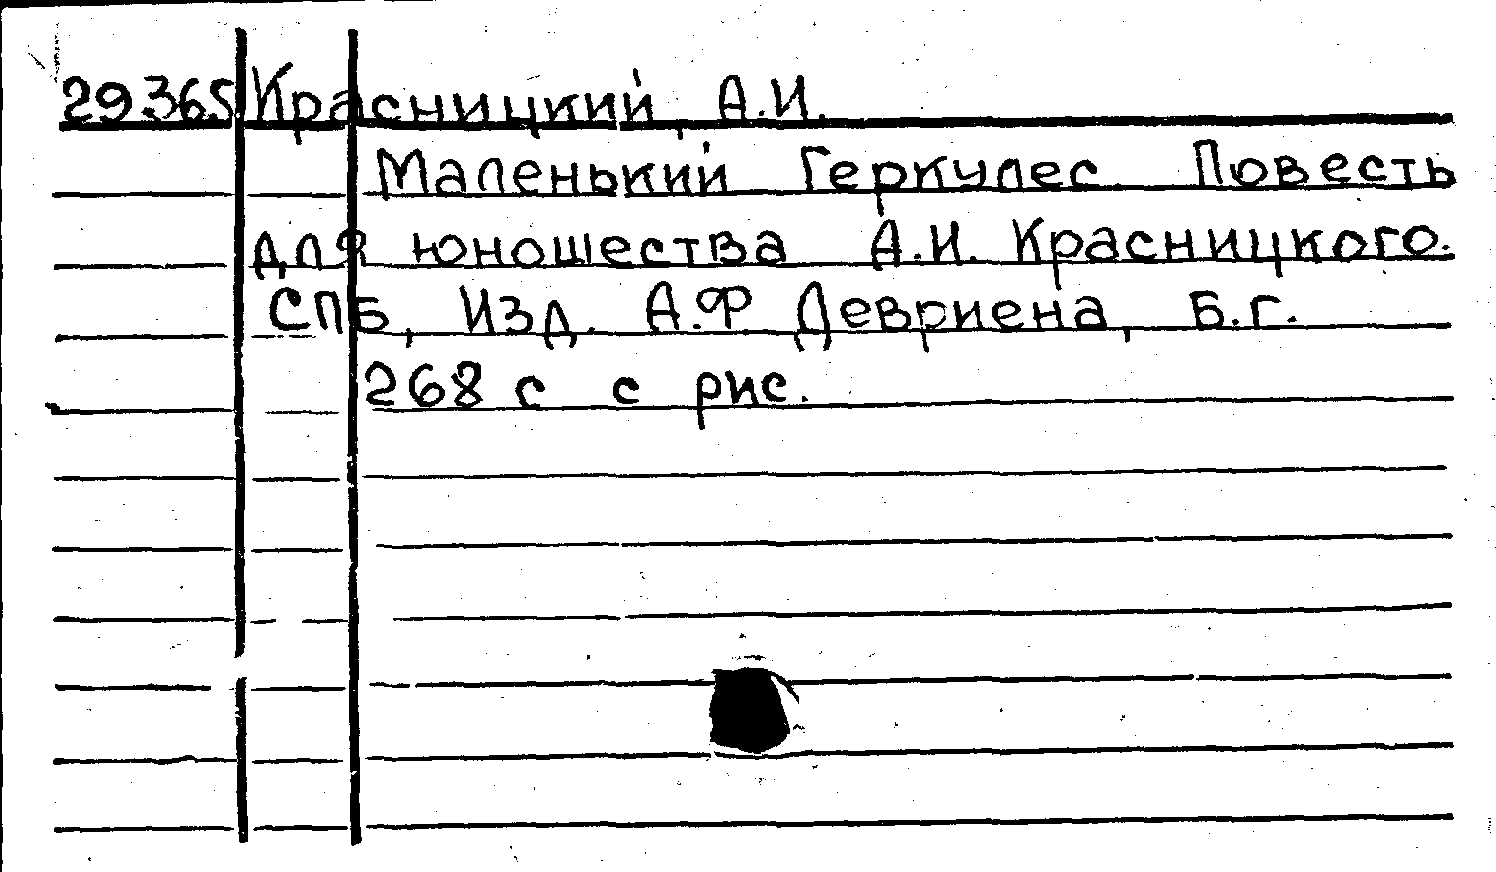 29365 Красницкий, А.И.
Маленький Геркулес. Повесть
для юношества А.И. Красницкого.
СПБ, Изд. А.Ф Девриена, Б.г.
268 с с рис.